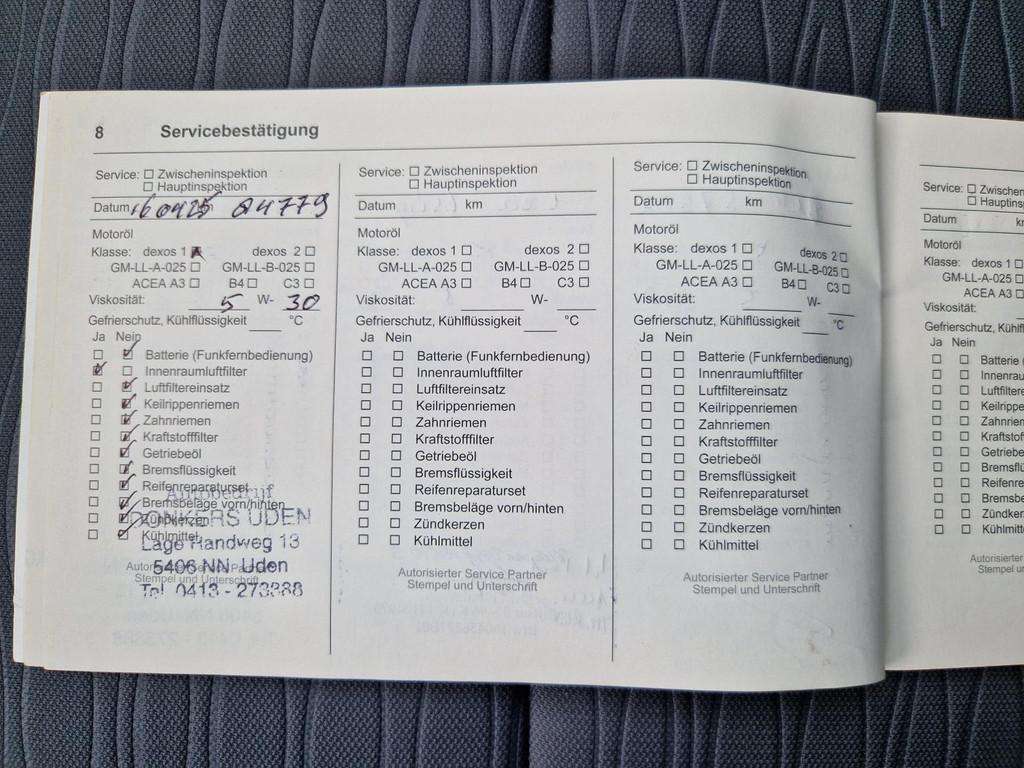 8 Servicebestätigung
Service: ☐ Zwischeninspektion
☐ Hauptinspektion
Datum 160425 km 24779
Motoröl
Klasse: dexos 1 ☒ dexos 2 ☐
GM-LL-A-025 ☐ GM-LL-B-025 ☐
ACEA A3 ☐ B4 ☐ C3 ☐
Viskosität: 5 W- 30
Gefrierschutz, Kühlflüssigkeit ____ °C
Ja Nein
☐ ☑ Batterie (Funkfernbedienung)
☑ ☐ Innenraumluftfilter
☐ ☑ Luftfiltereinsatz
☐ ☑ Keilrippenriemen
☐ ☑ Zahnriemen
☐ ☑ Kraftstofffilter
☐ ☑ Getriebeöl
☐ ☑ Bremsflüssigkeit
☐ ☑ Reifenreparaturset
☐ ☑ Bremsbeläge vorn/hinten
☐ ☑ Zündkerzen
☐ ☑ Kühlmittel
Autorisierter Service Partner
Stempel und Unterschrift
Autobedrijf
DONKERS UDEN
Lage Randweg 13
5406 NN Uden
Tel. 0413 - 273888
Service: ☐ Zwischeninspektion
☐ Hauptinspektion
Datum km
Motoröl
Klasse: dexos 1 ☐ dexos 2 ☐
GM-LL-A-025 ☐ GM-LL-B-025 ☐
ACEA A3 ☐ B4 ☐ C3 ☐
Viskosität: ____ W- ____
Gefrierschutz, Kühlflüssigkeit ____ °C
Ja Nein
☐ ☐ Batterie (Funkfernbedienung)
☐ ☐ Innenraumluftfilter
☐ ☐ Luftfiltereinsatz
☐ ☐ Keilrippenriemen
☐ ☐ Zahnriemen
☐ ☐ Kraftstofffilter
☐ ☐ Getriebeöl
☐ ☐ Bremsflüssigkeit
☐ ☐ Reifenreparaturset
☐ ☐ Bremsbeläge vorn/hinten
☐ ☐ Zündkerzen
☐ ☐ Kühlmittel
Autorisierter Service Partner
Stempel und Unterschrift
Service: ☐ Zwischeninspektion
☐ Hauptinspektion
Datum km
Motoröl
Klasse: dexos 1 ☐ dexos 2 ☐
GM-LL-A-025 ☐ GM-LL-B-025 ☐
ACEA A3 ☐ B4 ☐ C3 ☐
Viskosität: ____ W- ____
Gefrierschutz, Kühlflüssigkeit ____ °C
Ja Nein
☐ ☐ Batterie (Funkfernbedienung)
☐ ☐ Innenraumluftfilter
☐ ☐ Luftfiltereinsatz
☐ ☐ Keilrippenriemen
☐ ☐ Zahnriemen
☐ ☐ Kraftstofffilter
☐ ☐ Getriebeöl
☐ ☐ Bremsflüssigkeit
☐ ☐ Reifenreparaturset
☐ ☐ Bremsbeläge vorn/hinten
☐ ☐ Zündkerzen
☐ ☐ Kühlmittel
Autorisierter Service Partner
Stempel und Unterschrift
Service: ☐ Zwischen
☐ Hauptins
Datum k
Motoröl
Klasse: dexos 1 ☐
GM-LL-A-025 ☐
ACEA A3 ☐
Viskosität:
Gefrierschutz, Kühlfl
Ja Nein
☐ ☐ Batterie
☐ ☐ Innenrau
☐ ☐ Luftfilter
☐ ☐ Keilrippe
☐ ☐ Zahnrie
☐ ☐ Kraftstof
☐ ☐ Getriebe
☐ ☐ Bremsfl
☐ ☐ Reifenre
☐ ☐ Bremsbe
☐ ☐ Zündker
☐ ☐ Kühlmitt
Autorisier
Stempel u